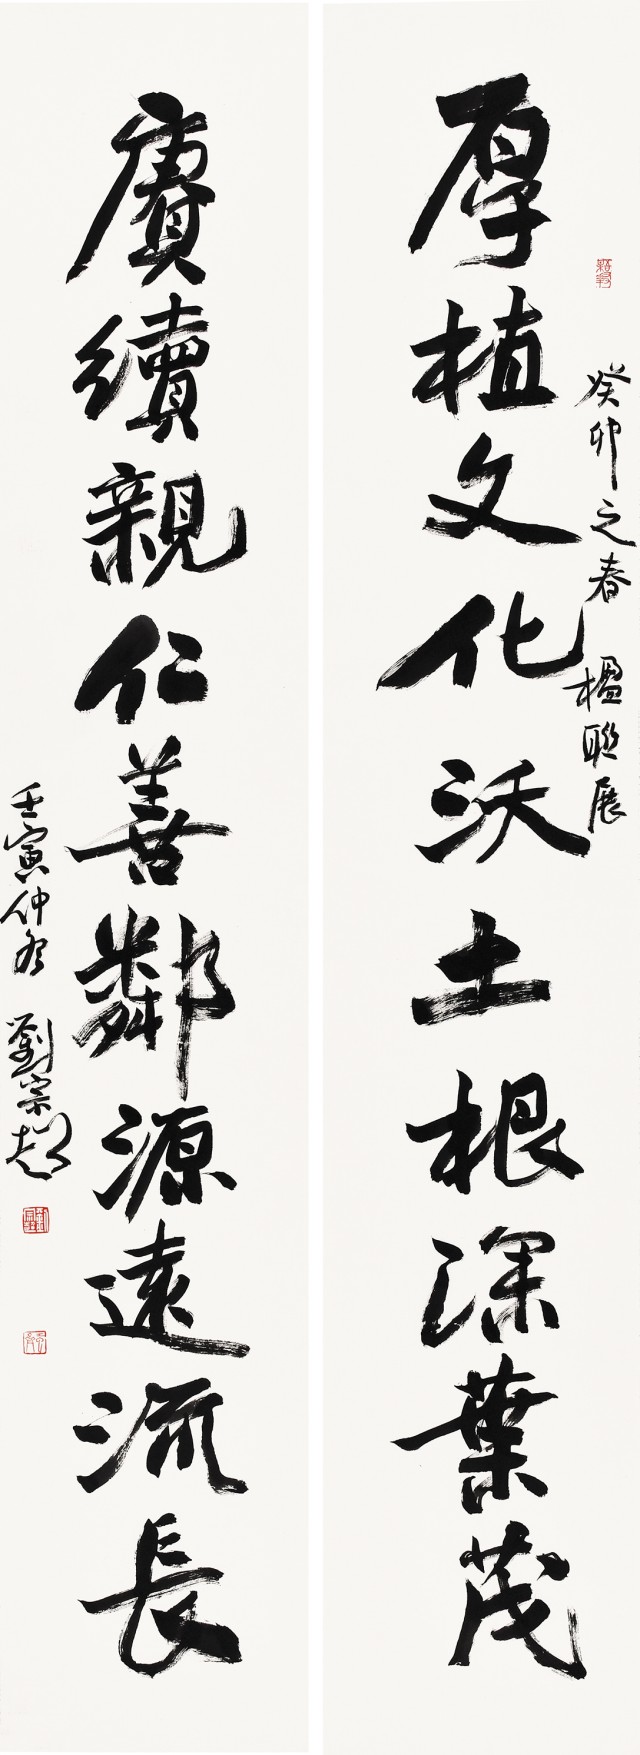 癸卯之春 楹联展
厚植文化沃土根深葉茂
賡續親仁善鄰源遠流長
壬寅仲冬 劉宗超